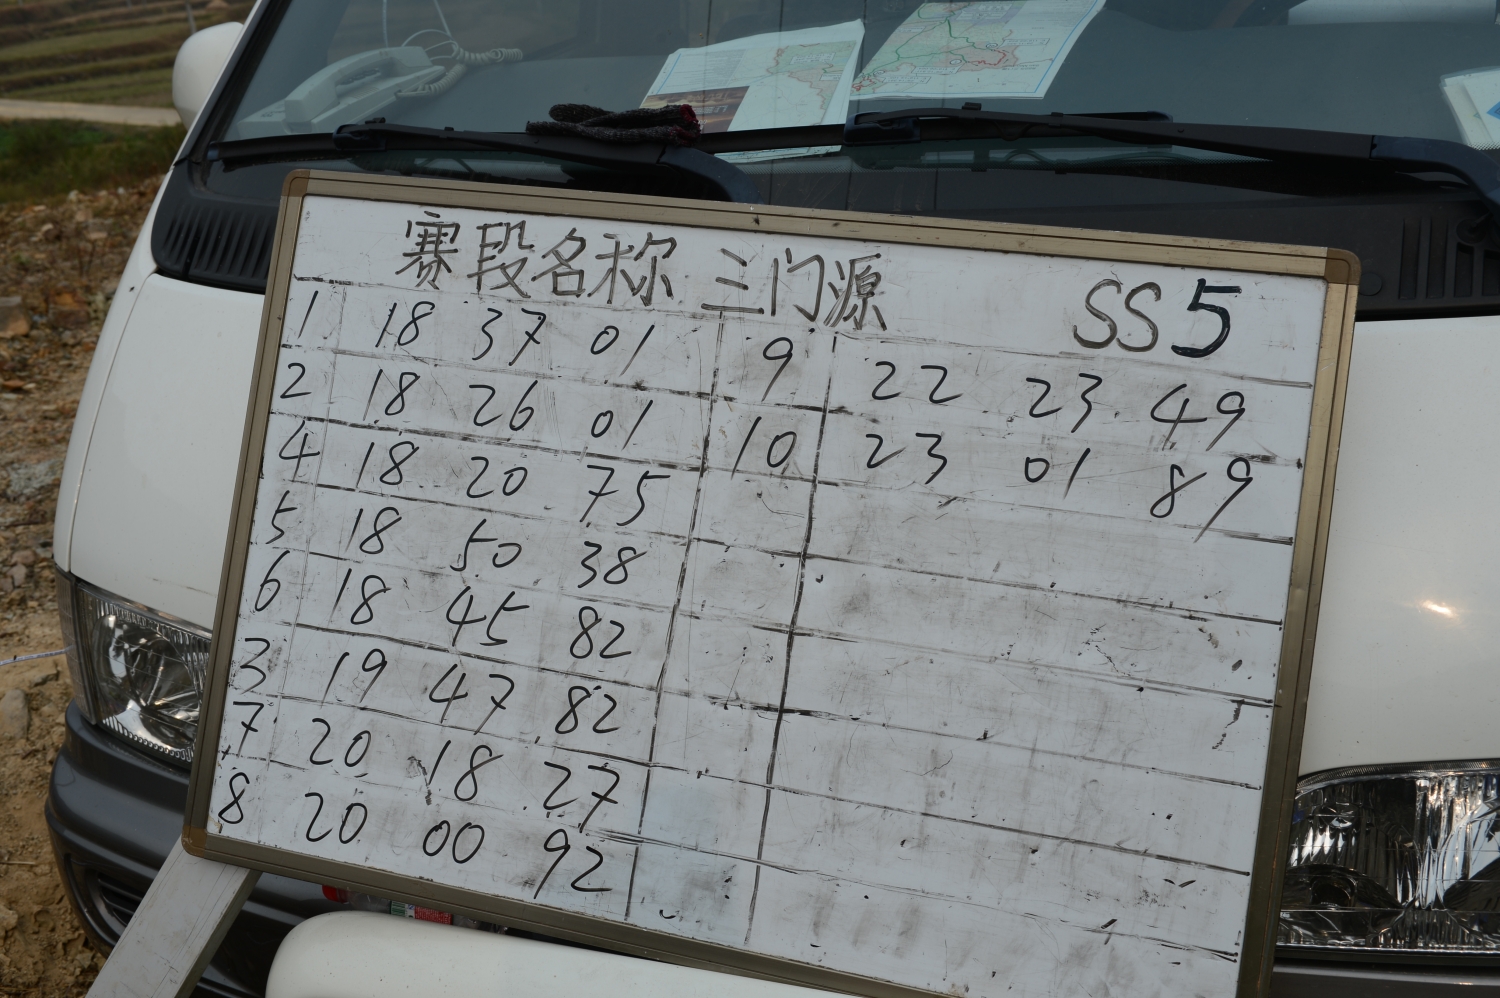 赛段名称 三门源 SS5
1 18 37 01
2 18 26 01
4 18 20 75
5 18 50 38
6 18 45 82
3 19 47 82
7 20 18 27
8 20 00 92
9 22 23 49
10 23 01 89